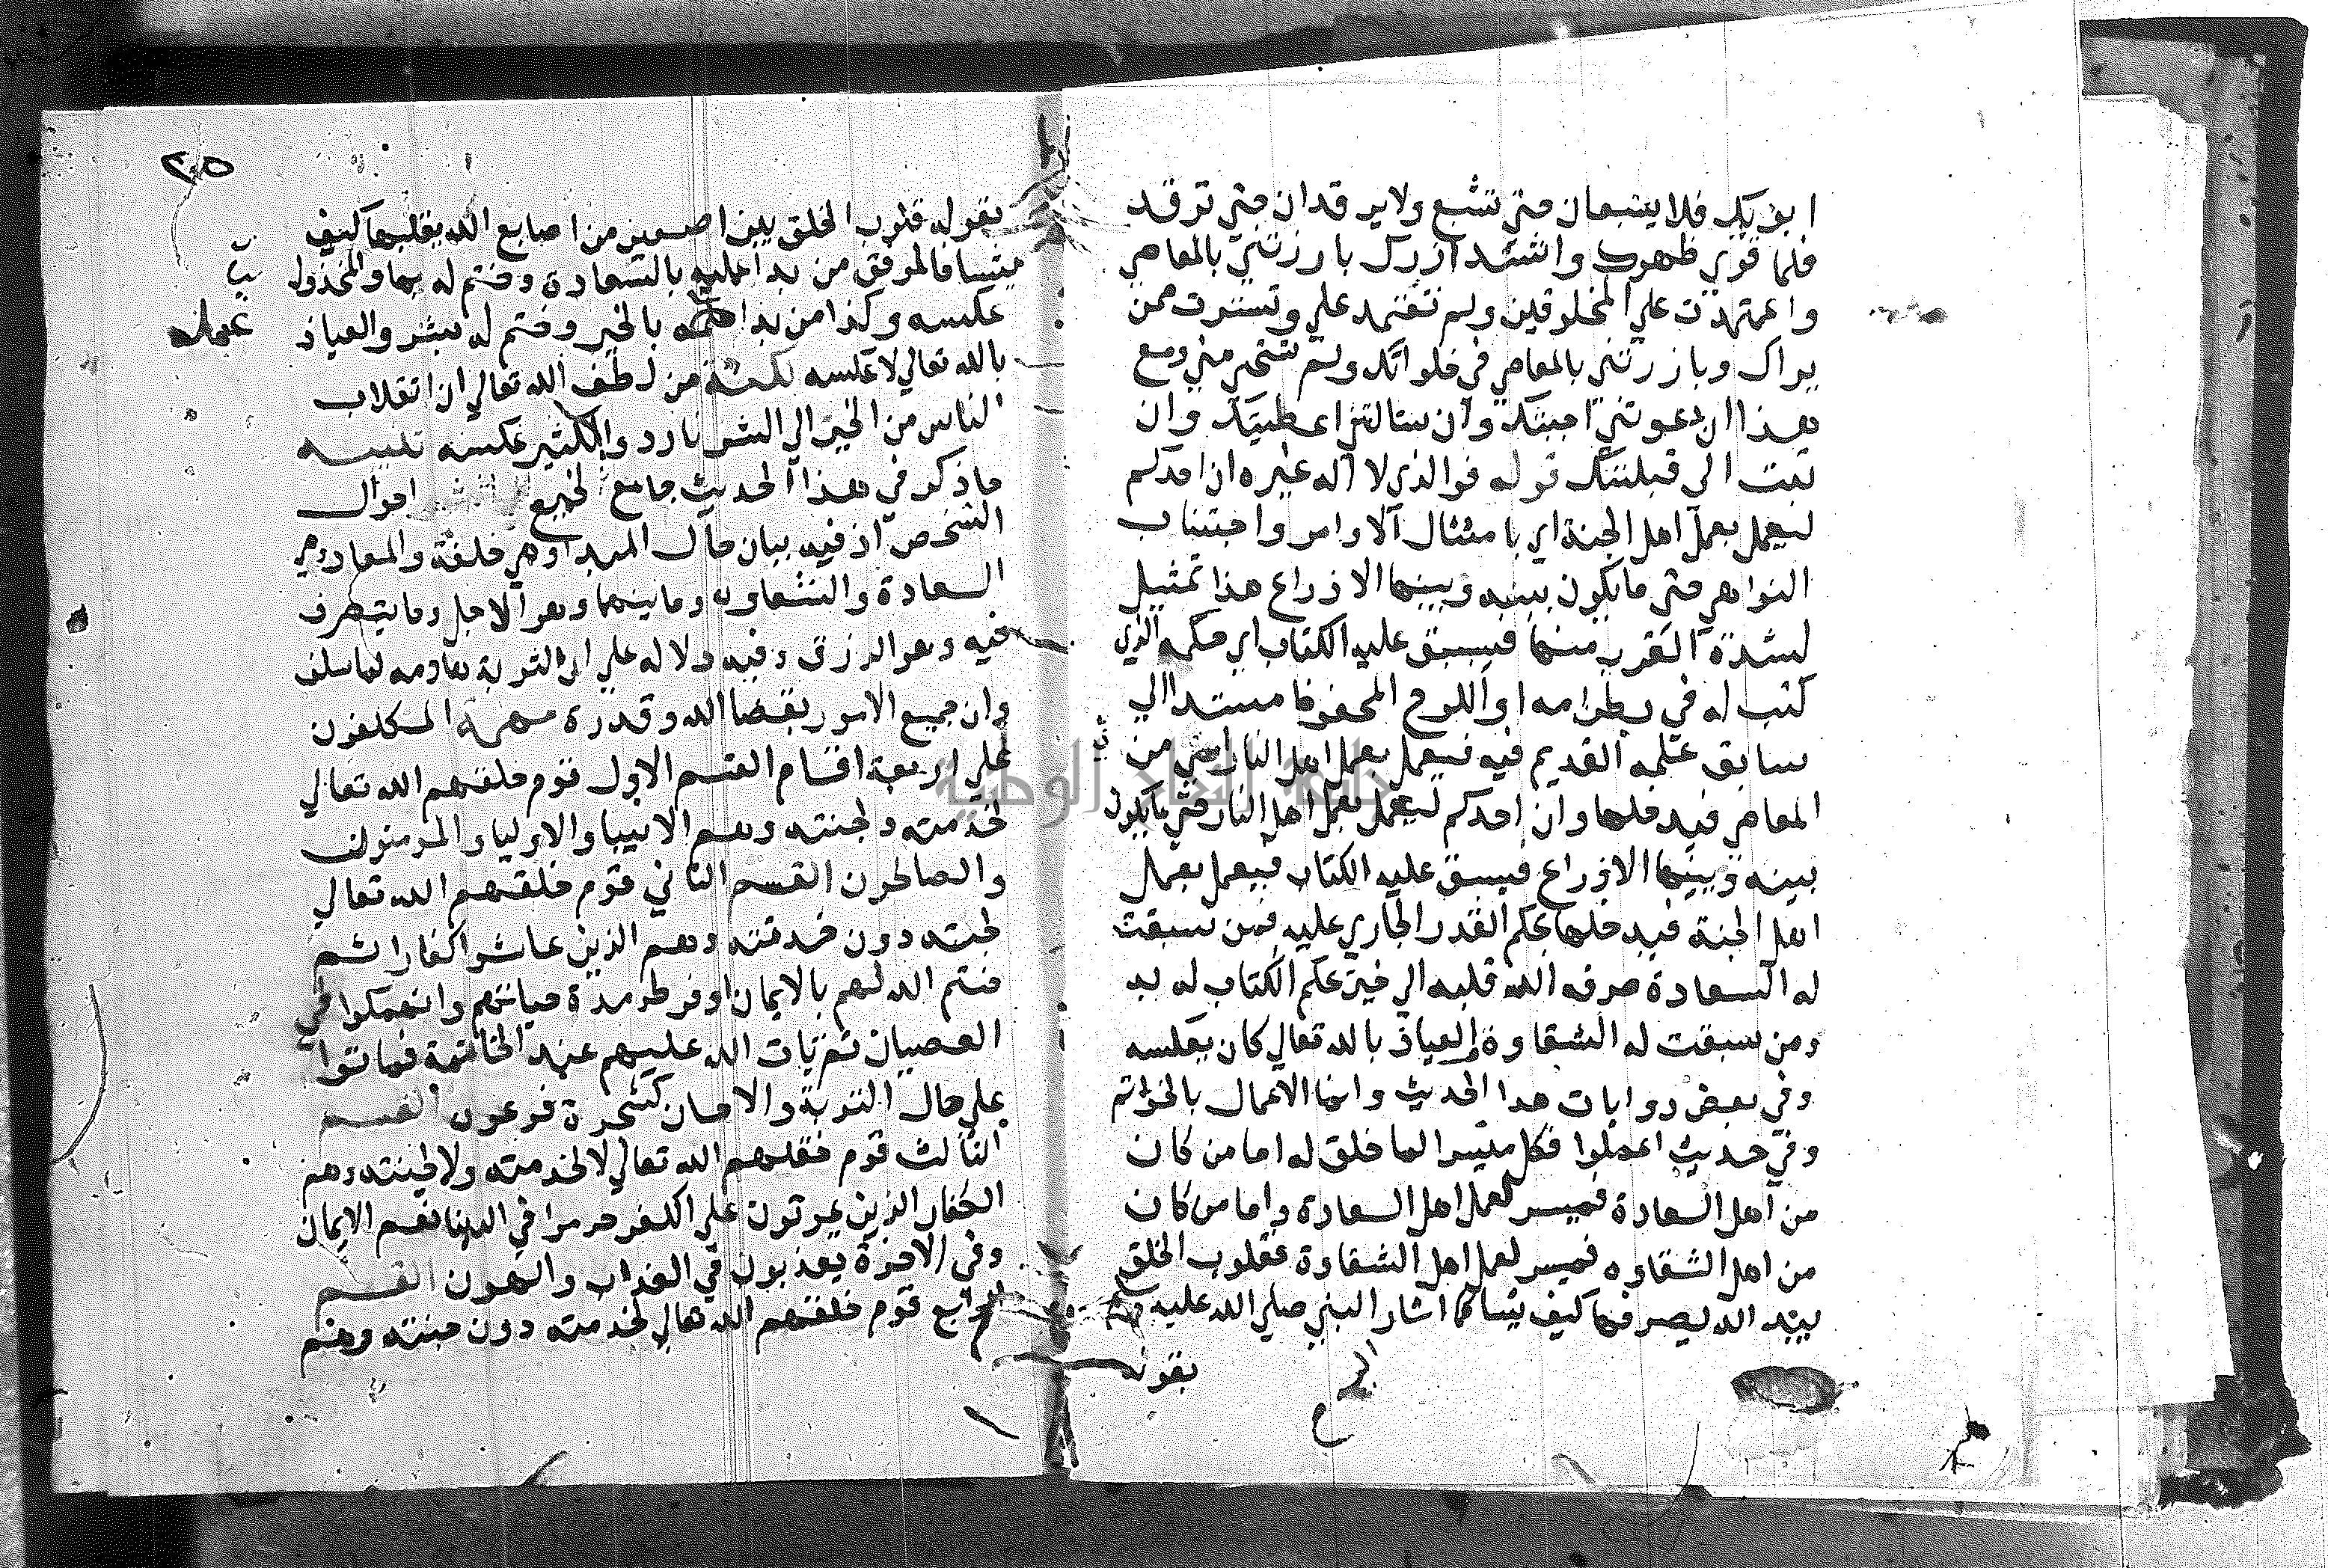 ابويك فلا يشبعان حتي تشبع ولا يرقدان حتي ترقد
فلما قوي ظهرك واشتد ازرك بارزتني بالمعاصي
واعتمدت علي المخلوقين ولم تعتمد علي وتسترت ممن
يراك وبارزتني بالمعاصي في خلواتك ولم تستحي مني ومع
هذا ان دعوتني اجبتك وان سالتني اعطيتك وان
تبت الي قبلتك قوله فوالذي لا اله غيره ان احدكم
ليعمل بعمل اهل الجنة اي بامتثال الاوامر واجتناب
النواهي حتي ما يكون بينه وبينها الا ذراع هذا تمثيل
لشدة القرب منها فيسبق عليه الكتاب اي حكمه الذي
كتب له في بطن امه او اللوح المحفوظ مستندا الي
سابق علمه القديم فيه فيعمل بعمل اهل النار اي من
المعاصي فيدخلها وان احدكم ليعمل بعمل اهل النار حتي ما يكون
بينه وبينها الا ذراع فيسبق عليه الكتاب فيعمل بعمل
اهل الجنة فيدخلها بحكم القدر الجاري عليه فمن سبقت
له السعادة صرف الله قلبه الي خير بحكم الكتاب له به
ومن سبقت له الشقاوة والعياذ بالله تعالي كان بعكسه
وفي بعض روايات هذا الحديث وانما الاعمال بالخواتم
وفي حديث اعملوا فكل ميسر لما خلق له اما من كان
من اهل السعادة فميسر لعمل اهل السعادة واما من كان
من اهل الشقاوه فميسر لعمل اهل الشقاوة فقلوب الخلق
بيد الله يصرفها كيف يشا كما اشار النبي صلي الله عليه وسلم
بقوله
٢٠٥
بقوله قلوب الخلق بين اصبعين من اصابع الله يقلبها كيف
يشا فالموفق من بدا عليه بالسعادة وختم له بها والمخذول
عكسه وكذا من بدا عمله بالخير وختم له بشر والعياذ
عمله
بالله تعالي لا عكسه لكنه من لطف الله تعالي ان انقلاب
الناس من الخير الي الشر نادر والكثير عكسه تنبيه
ما ذكر في هذا الحديث جامع لجميع احوال
الشخص اذ فيه بيان حال المبدا وهي خلقة والمعاد وهي
السعادة والشقاوه وما بينهما وهو الاجل وما يتصرف
فيه وهو الرزق وفيه دلاله علي ان التوبة هادمه لما سلف
وان جميع الامور بقضا الله وقدره المكلفون
علي اربعة اقسام القسم الاول قوم خلقهم الله تعالي
لخدمته ولجنته وهم الانبيا والاوليا والمومنون
والصالحون القسم الثاني قوم خلقهم الله تعالي
لجنته دون خدمته وهم الذين عاشوا كفارا ثم
ختم الله لهم بالايمان او فرطوا مدة حياتهم وانهمكوا في
العصيان ثم تاب الله عليهم عند الخاتمة فماتوا
علي حال التوبة والاحسان كسحرة فرعون القسم
الثالث قوم خلقهم الله تعالي لا لخدمته ولا لجنته وهم
الكفار الذين يموتون علي الكفر حرموا في الدنيا نعم الايمان
وفي الاخرة يعذبون في العذاب والهون القسم
الرابع قوم خلقهم الله تعالي لخدمته دون جنته وهم